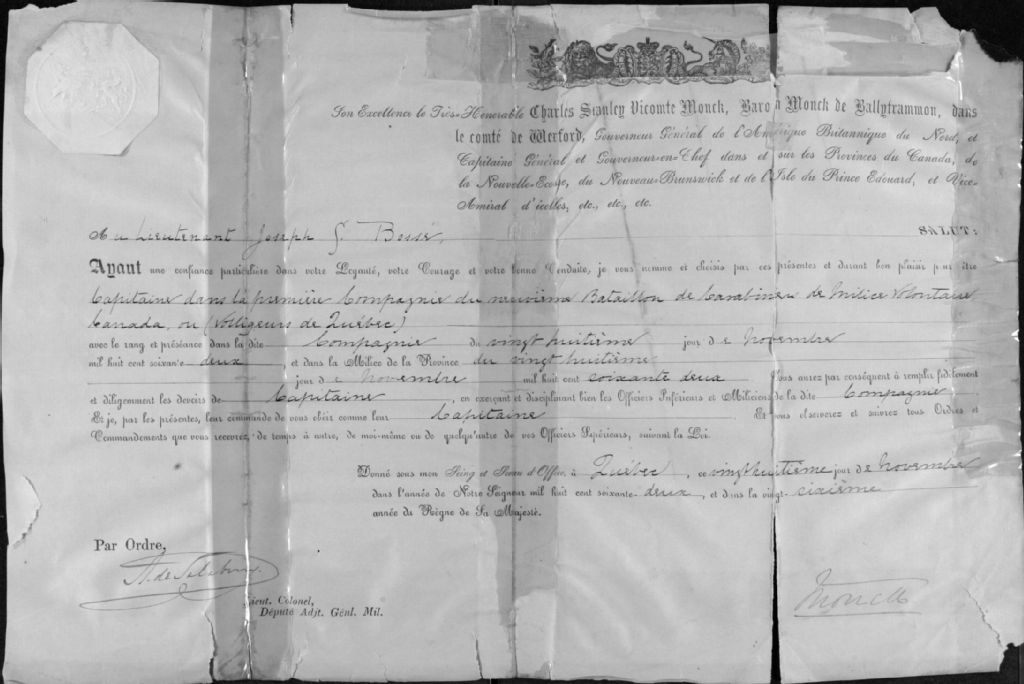 Son Excellence le Très-Honorable Charles Stanley Vicomte Monck, Baron Monck de Ballytrammon, dans
le comté de Werford, Gouverneur Général de l'Amérique Britannique du Nord, et
Capitaine Général et Gouverneur-en-Chef dans et sur les Provinces du Canada, de
la Nouvelle-Ecosse, du Nouveau-Brunswick et de l'Isle du Prince Edouard, et Vice-
Amiral d'icelles, etc., etc., etc.
Au Lieutenant Joseph G. Bossé, SALUT:
Ayant une confiance particulière dans votre Loyauté, votre Courage et votre bonne Conduite, je vous nomme et choisis par ces présentes et durant bon plaisir pour être
Capitaine dans la première Compagnie du neuvième Bataillon de Carabiniers de Milice Volontaire
Canada, ou (Voltigeurs de Québec)
avec le rang et préséance dans la dite Compagnie du vingt huitième jour de Novembre
mil huit cent soixante deux, et dans la Milice de la Province du vingt huitième
jour de Novembre mil huit cent soixante deux Vous aurez par conséquent à remplir fidèlement
et diligemment les devoirs de Capitaine, en exerçant et disciplinant bien les Officiers Inférieurs et Miliciens de la dite Compagnie.
Et je, par les présentes, leur commande de vous obéir comme leur Capitaine Et vous observerez et suivrez tous Ordres et
Commandements que vous recevrez, de temps à autre, de moi-même ou de quelqu'autre de vos Officiers Supérieurs, suivant la Loi.
Donné sous mon Seing et Sceau d'Office, à Québec, ce vingt huitième jour de Novembre
dans l'année de Notre Seigneur mil huit cent soixante-deux, et dans la vingt-sixième
année du Règne de Sa Majesté.
Par Ordre,
A. de Salaberry
Lieut. Colonel,
Député Adjt. Génl. Mil.
Monck